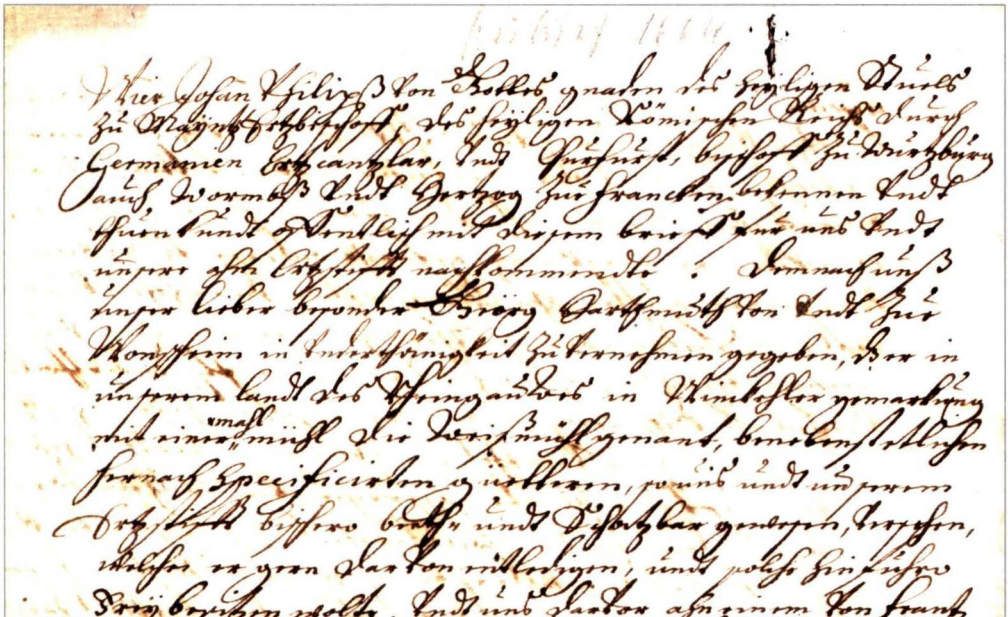 Wier Johan Philipß von Gottes gnaden des heyligen Stuels
zu Mayntz Ertzbischoff, des heyligen Römischen Reichs durch
Germanien Ertzcantzlar, undt Churfürst, bischoff zu Wurtzburg
auch Wormbß undt Hertzog zue Francken, bekennen undt
thuen kundt öffentlich mit diesem brieff für uns undt
unsere ahm Ertzstifft nachkommendte. Demnach unß
unser lieber besonder Geörg Hartmuth von undt zue
Monsheim in underthänigkeit zu vernehmen gegeben, dz er in
unserem landt des Rheingauwes in Winckehler gemarkung
mit einer mahl mühl die Weißmühl genant, benebenst etlichen
hernach specificirten güettteren, so uns undt unserem
Ertzstifft bishero beeth- undt Schatzbar gewesen, versehen,
welche er gern darvon entledigen, undt solche hinführo
Frey besitzen wolte, undt uns darvor ahn einem von Frantz